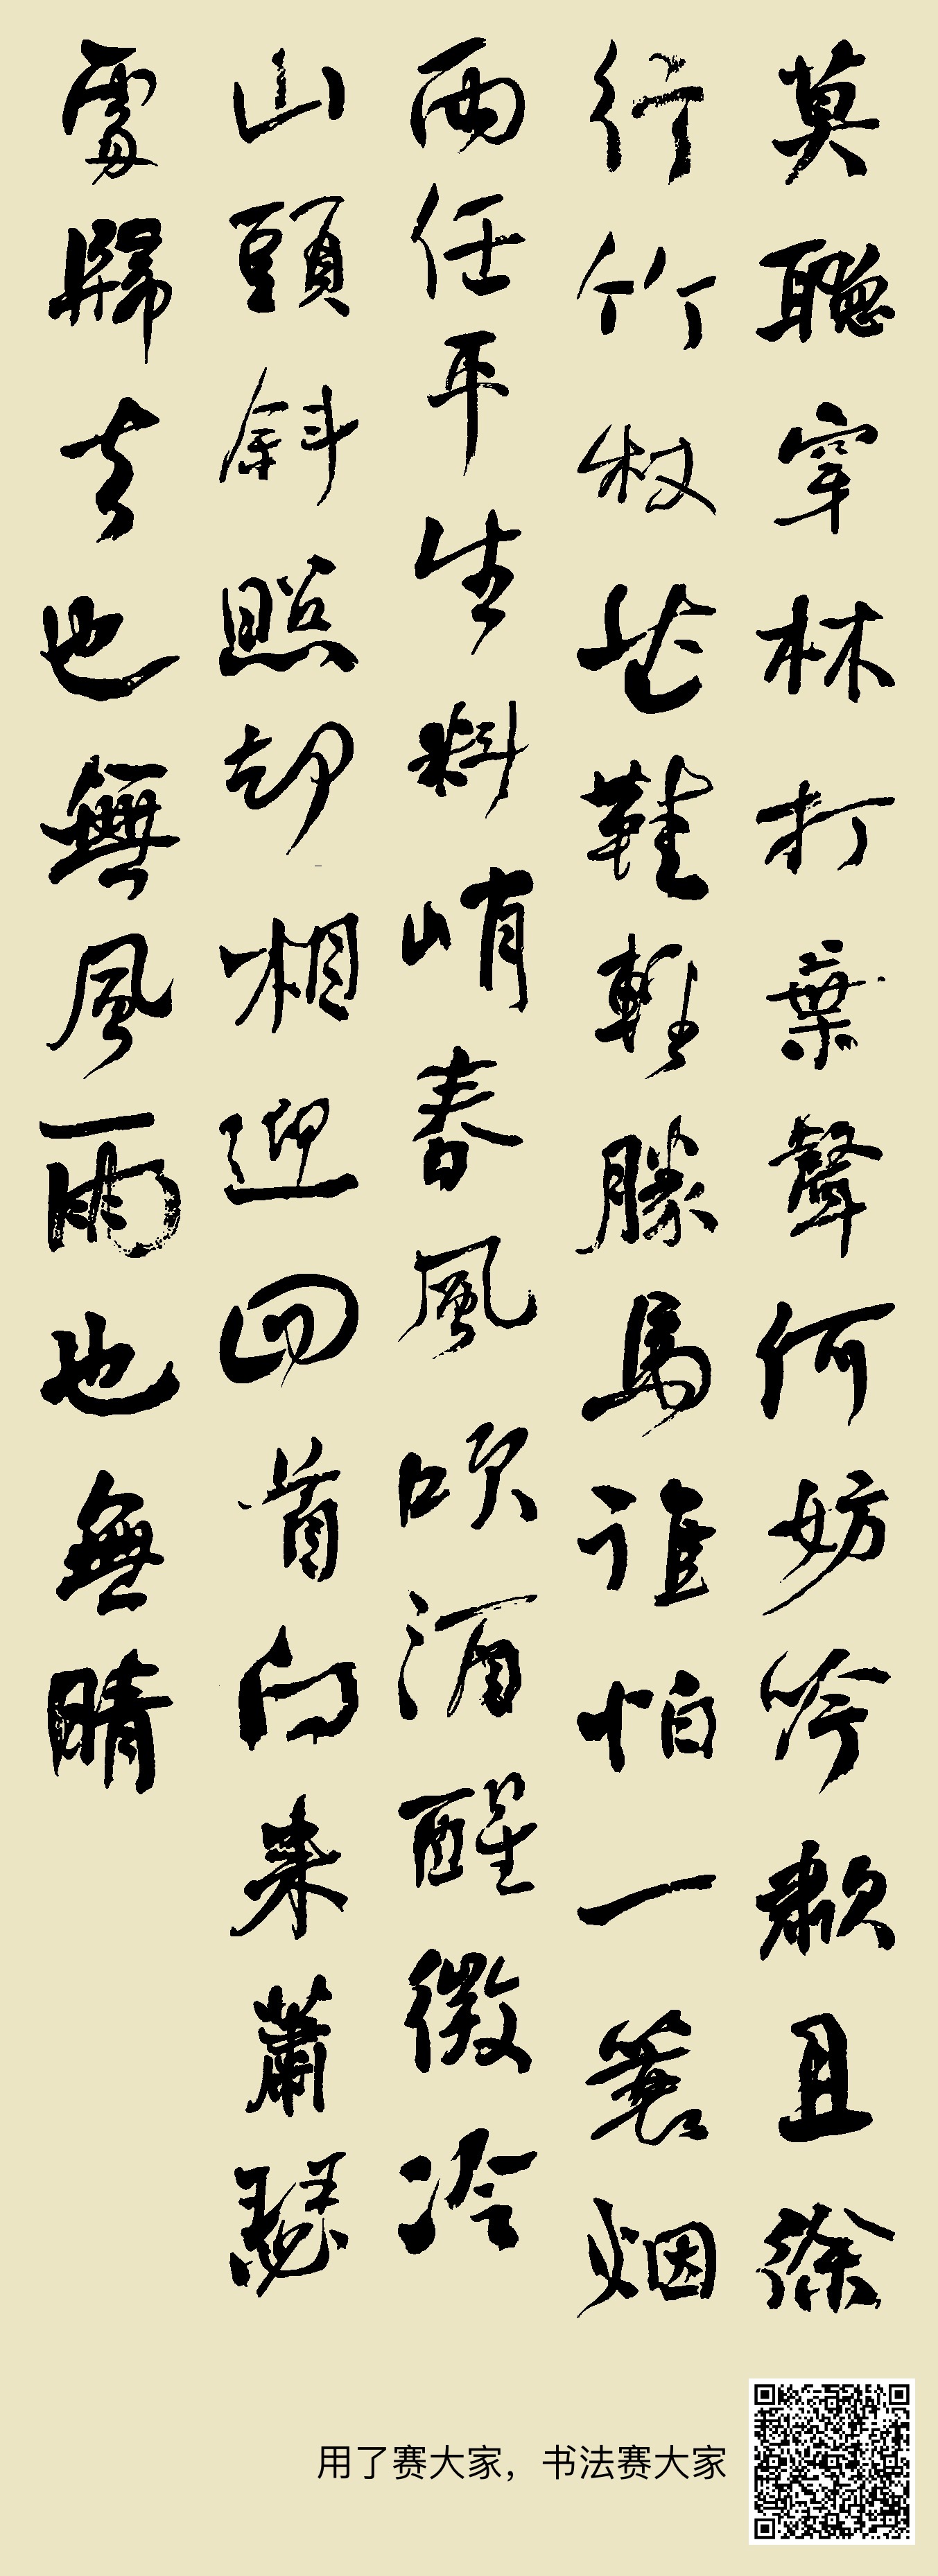 莫聽穿林打葉聲何妨吟歗且徐
行竹杖芒鞋輕勝馬誰怕一簑烟
雨任平生料峭春風吹酒醒微冷
山頭斜照却相迎回首向来蕭瑟
處歸去也無風雨也無晴
用了赛大家，书法赛大家